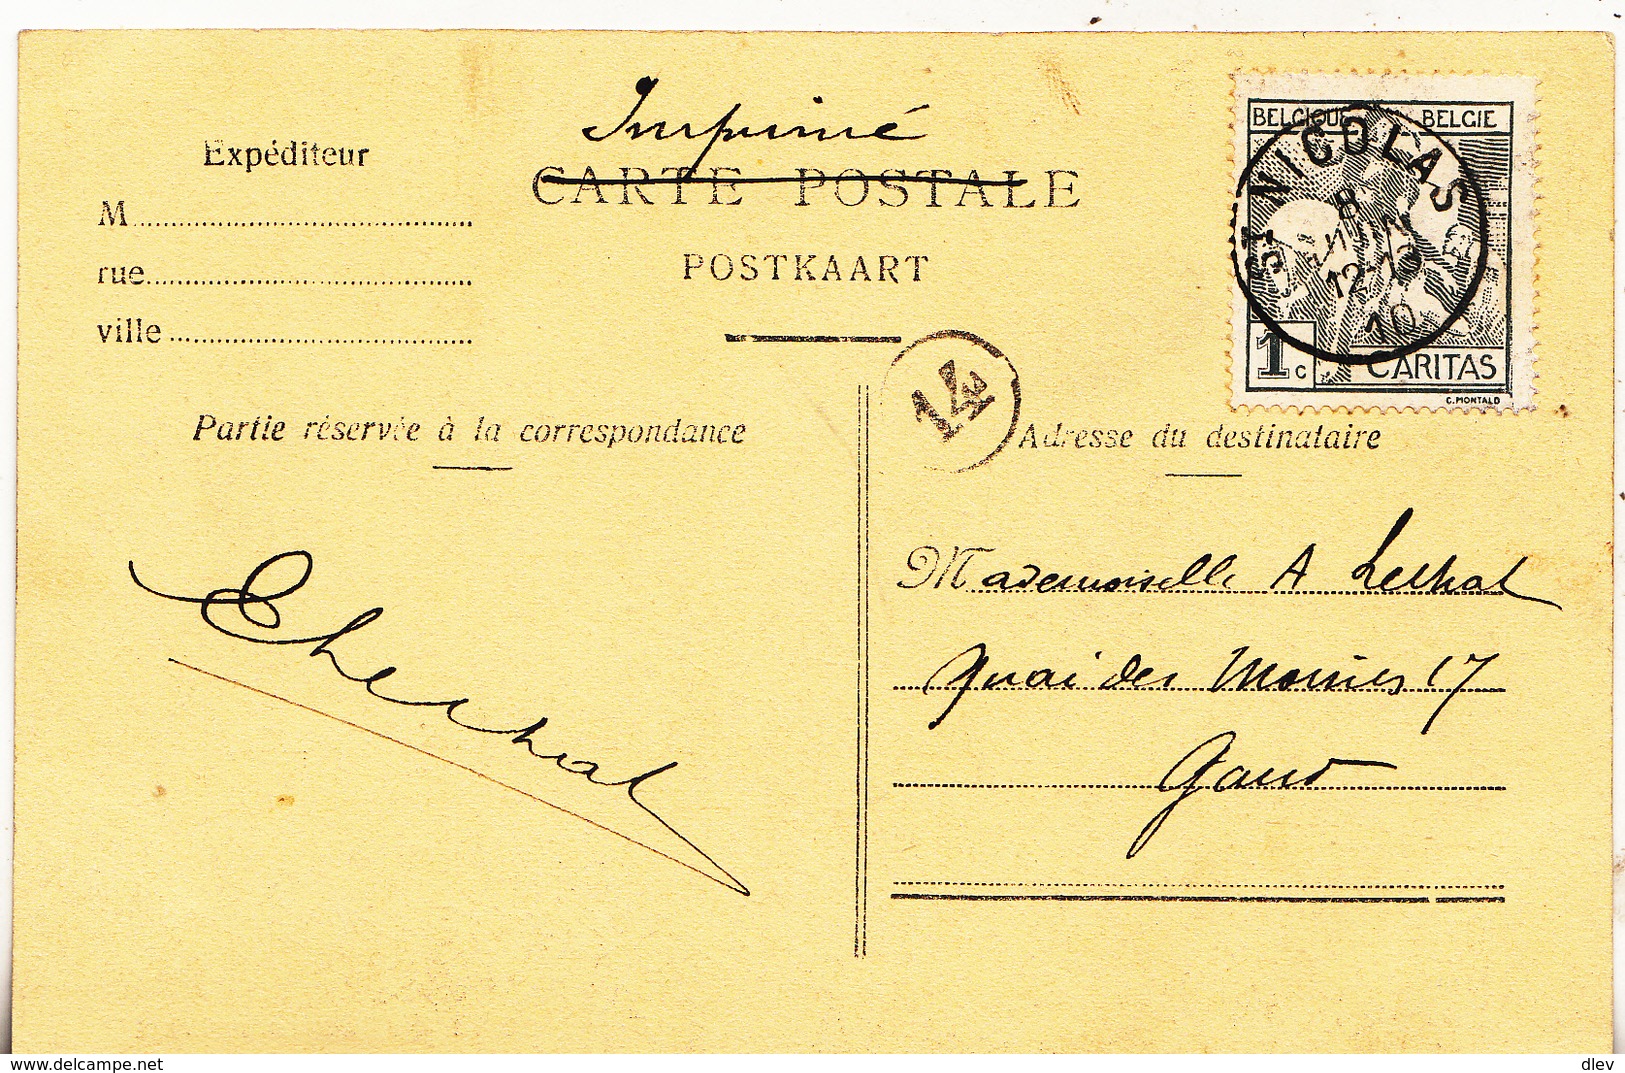 Imprimé
Expéditeur
CARTE POSTALE
M
rue
POSTKAART
ville
BELGIQUE BELGIE
ST NICOLAS
8
12-13
10
1c
CARITAS
C. MONTALD
14
Partie réservée à la correspondance
Adresse du destinataire
Mademoiselle A Lechat
Quai des Moines 17
Gand
delcampe.net
dlev